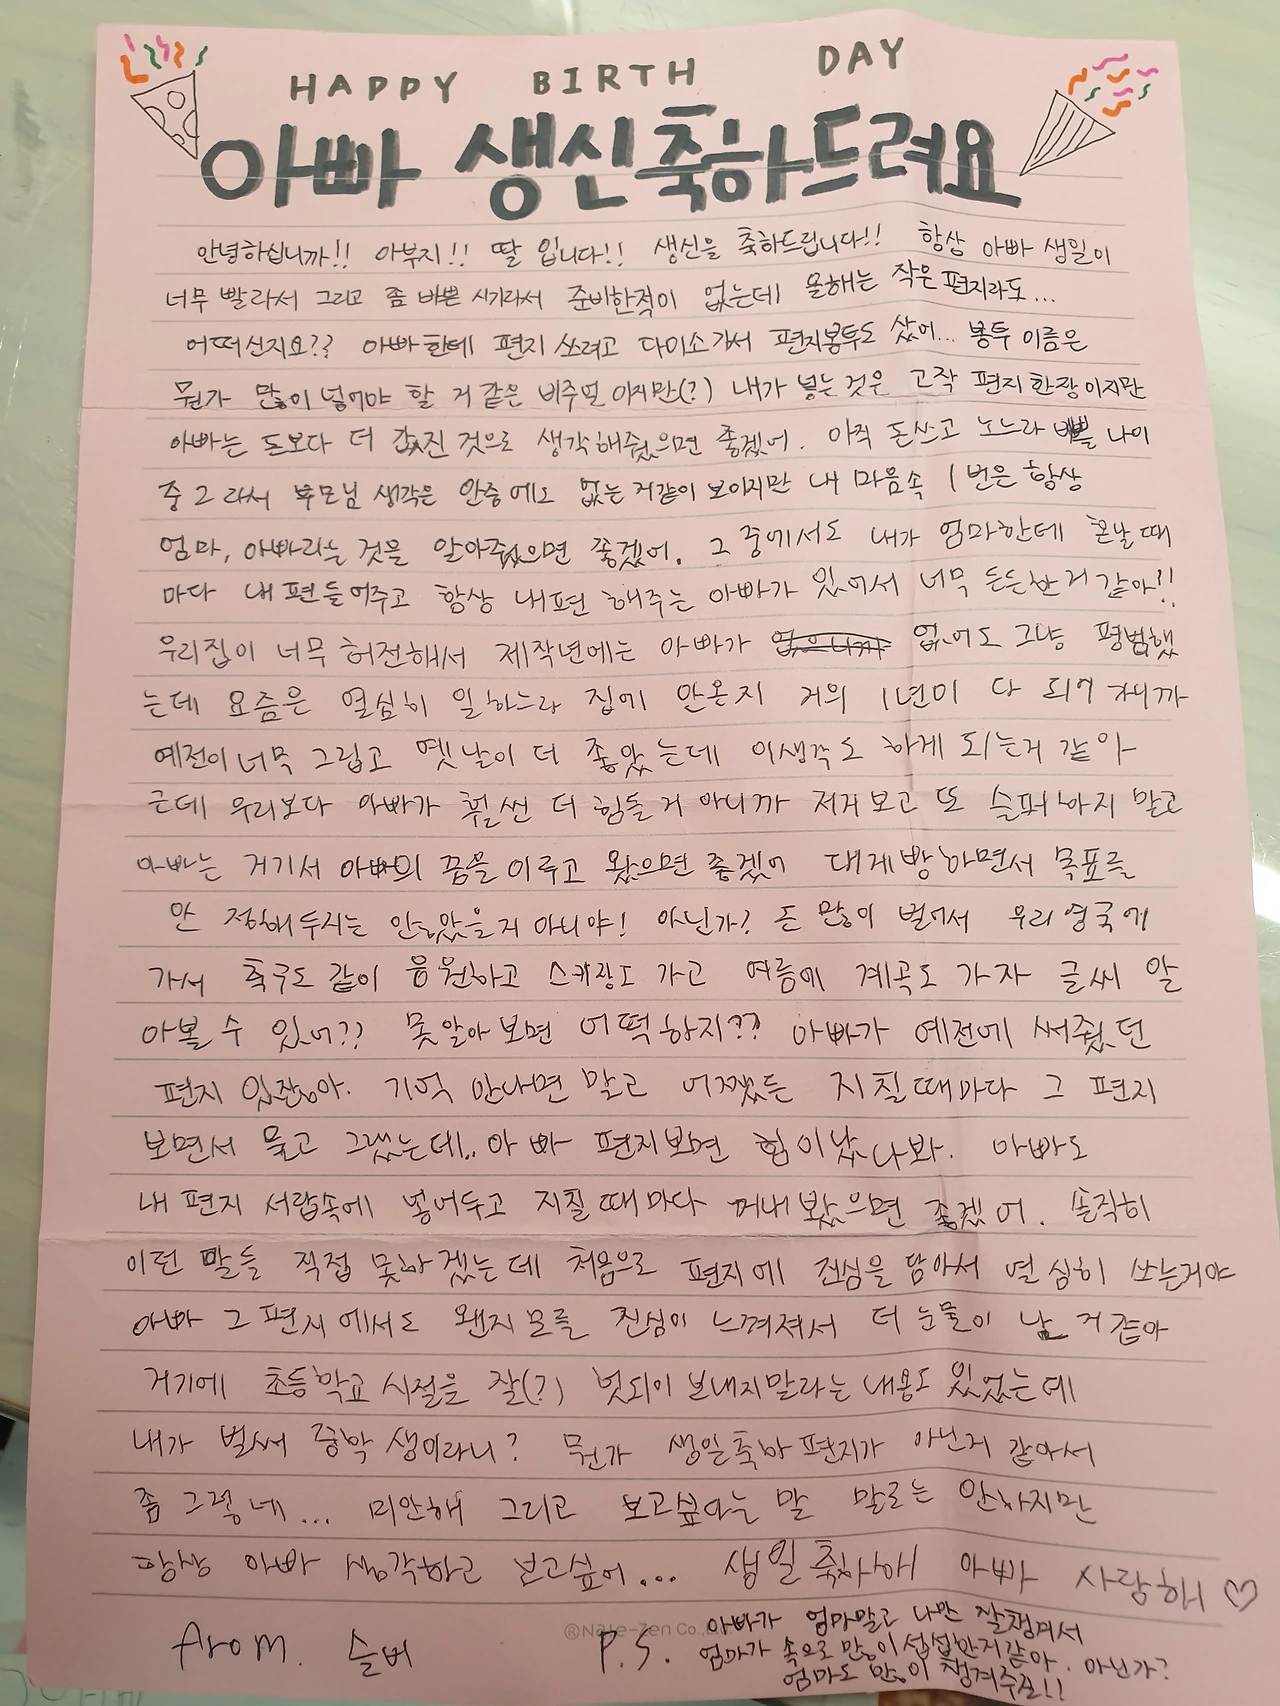 HAPPY BIRTH DAY
아빠 생신축하드려요
안녕하십니까!! 아부지!! 딸 입니다!! 생신을 축하드립니다!! 항상 아빠 생일이
너무 빨라서 그리고 좀 바쁜 시기라서 준비한적이 없는데 올해는 작은 편지라도...
어떠신지요?? 아빠한테 편지 쓰려고 다이소가서 편지봉투도 샀어... 봉투 이름은
뭔가 많이 넣어야 할 거 같은 비주얼이지만(?) 내가 넣는 것은 고작 편지 한장이지만
아빠는 돈보다 더 값진 것으로 생각해줬으면 좋겠어. 아직 돈쓰고 노느라 바쁠 나이
중2라서 부모님 생각은 안중에도 없는거같이 보이지만 내 마음속 1번은 항상
엄마, 아빠라는 것을 알아줬으면 좋겠어. 그 중에서도 내가 엄마한테 혼날 때
마다 내편들어주고 항상 내편 해주는 아빠가 있어서 너무 든든한거 같아!!
우리집이 너무 허전해서 제작년에는 아빠가 없어도 그냥 평범했
는데 요즘은 열심히 일하느라 집에 안온지 거의 1년이 다 되어 가니까
예전이 너무 그립고 옛날이 더 좋았는데 이생각도 하게 되는거 같아
근데 우리보다 아빠가 훨씬 더 힘들거 아니까 저거보고 또 슬퍼하지 말고
아빠는 거기서 아빠의 꿈을 이루고 왔으면 좋겠어 대게빵하면서 목표를
안 정해두시는 않았을지 아니야! 아닌가? 돈 많이 벌어서 우리 영국에
가서 축구도 같이 응원하고 스키장도 가고 여름에 계곡도 가자 글씨 알
아볼 수 있어?? 못알아보면 어떡하지?? 아빠가 예전에 써줬던
편지 있잖아. 기억 안나면 말고 어쨌든 지칠때마다 그 편지
보면서 울고 그랬는데.. 아빠 편지보면 힘이났나봐. 아빠도
내 편지 서랍속에 넣어두고 지칠때마다 꺼내봤으면 좋겠어. 솔직히
이런 말들 직접 못하겠는데 처음으로 편지에 진심을 담아서 열심히 쓰는거야
아빠 그 편지에서도 왠지모를 진심이 느껴져서 더 눈물이 난 거 같아
거기에 초등학교 시절을 잘(?) 헛되이 보내지말라는 내용도 있었는데
내가 벌써 중학생이라니? 뭔가 생일축하 편지가 아닌거 같아서
좀 그렇네... 미안해 그리고 보고싶다는 말 말로는 안하지만
항상 아빠 생각하고 보고싶어... 생일축하해 아빠 사랑해♡
from. 슬버
®Nate-Zen Co.,
P.S. 아빠가 엄마말고 나만 잘챙겨서
엄마가 속으로 많이 섭섭한거같아. 아닌가?
엄마도 많이 챙겨주죠!!